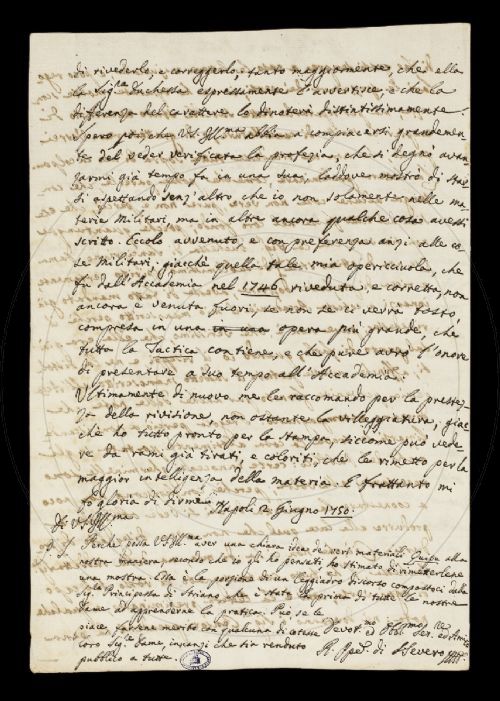 di rivederlo, e correggerlo tanto maggiormente, che ella
la Sig.ra Duchessa espressamente l'avvertisce, e che la
differenza del carattere lo dinoterà distintissimamente.
Spero poi che V.S. Ill.ma abbia a compiacersi grandemen-
te del veder verificata la profezia, che si degnò avan-
zarmi già tempo fa in una sua, laddove mostrò di star-
si aspettando senz'altro che io non solamente nelle ma-
terie Militari, ma in altre ancora qualche cosa avessi
scritto. Eccolo avvenuto, e con preferenza anzi alle co-
se Militari: giacchè quella tale mia opericciuola, che
fu dall'Accademia nel 1746 riveduta, e corretta, non
ancora è venuta fuori, se non se ci verrà tosto,
compresa in una in una opera più grande, che
tutta la Tactica contiene, e che pure avrò l'onore
di presentare a suo tempo all'Accademia.
Ultimamente di nuovo me le raccomando per la prestez-
za della rivisione, non ostante la villeggiatura, giac-
che ho tutto pronto per la stampa, siccome può vede-
re da' rami già tirati, e coloriti, che le rimetto per la
maggior intelligenza della materia. E frattanto mi
fo gloria di dirme
Di V.S. Ill.ma Napoli 2 Giugno 1750.
P. S. Perchè possa V.S. Ill.ma aver una chiara idea de' veri materiali Quipu alla
nostra maniera, secondo che io gli ho pensati, ho stimato di rimetterlene
una mostra. Essa è la porzione di un leggiadro discorso compostoci dalla
Sig.ra Principessa di Striano, che è stata la prima di tutte le nostre
Dame ad apprenderne la pratica. Può se le
piace, farsene merito con qualcuna di coteste Devot.mo ed Obbl.mo Ser. ed Amico
loro Sig.re Dame, innanzi che sia renduto R. Ppe. di S. Severo
pubblico a tutte.